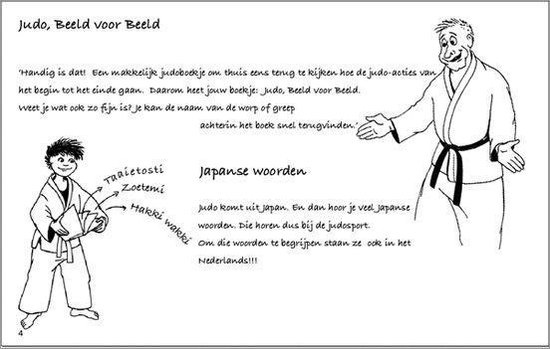 Judo, Beeld voor Beeld
'Handig is dat! Een makkelijk judoboekje om thuis eens terug te kijken hoe de judo-acties van
het begin tot het einde gaan. Daarom heet jouw boekje: Judo, Beeld voor Beeld.
Weet je wat ook zo fijn is? Je kan de naam van de worp of greep
achterin het boek snel terugvinden.'
Taaietosti
Zoetemi
Hakki wakki
Japanse woorden
Judo komt uit Japan. En dan hoor je veel Japanse
woorden. Die horen dus bij de judosport.
Om die woorden te begrijpen staan ze ook in het
Nederlands!!!
4